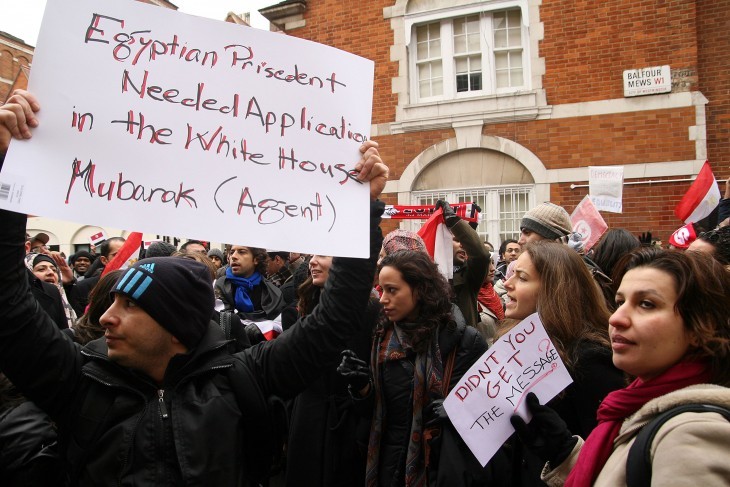 Egyptian Prisedent
Needed Application
in the White House
Mubarak (Agent)
BALFOUR
MEWS W1
DIDN'T YOU
GET
THE MESSAGE?